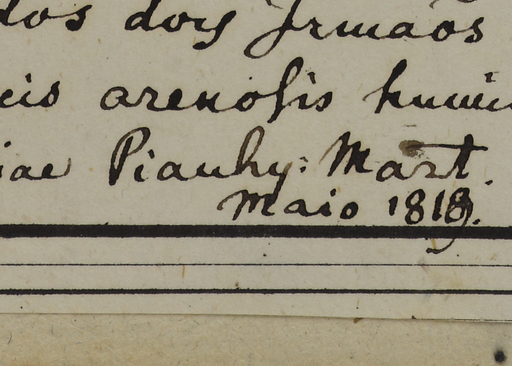 dos dois Irmãos
cis arenosis humi
iae Piauhy: Mart.
Maio 1819.